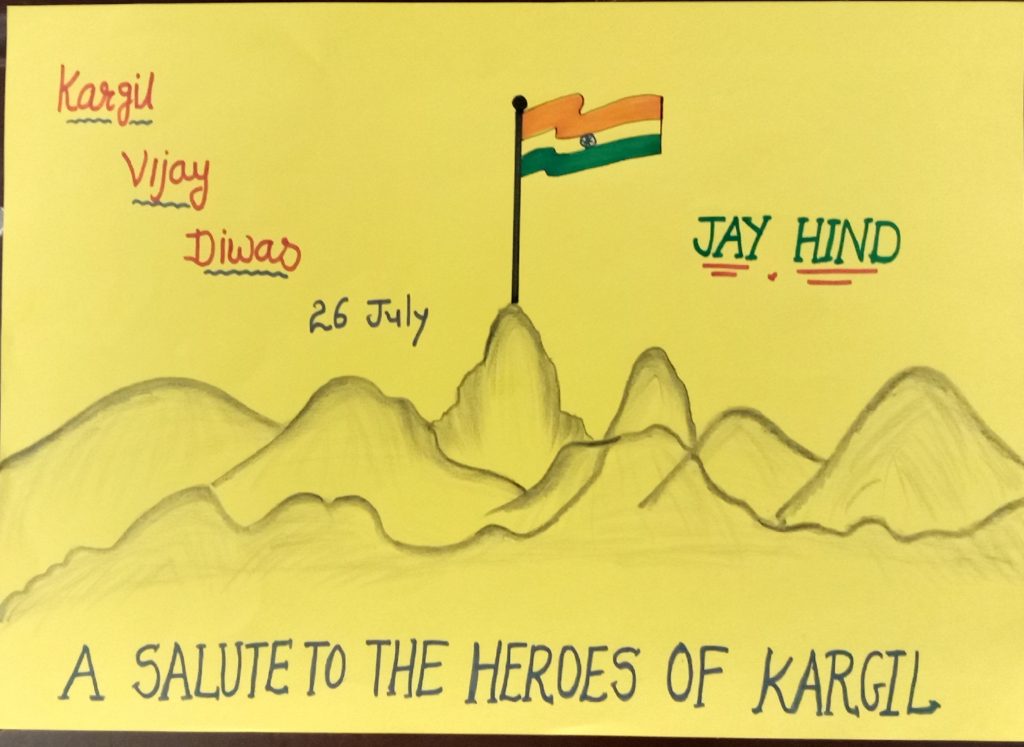 Kargil
Vijay
Diwas
26 July
JAY HIND
A SALUTE TO THE HEROES OF KARGIL